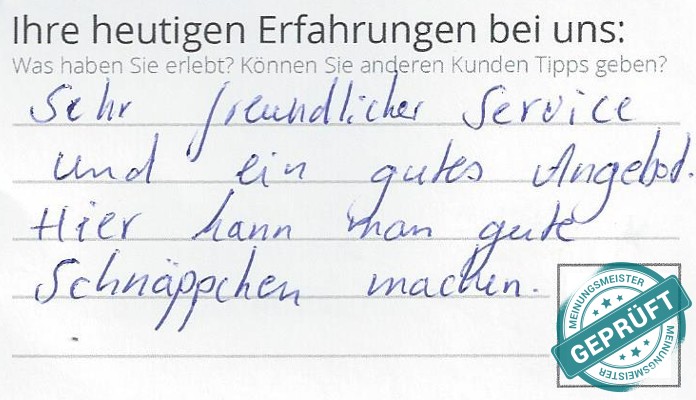 Ihre heutigen Erfahrungen bei uns:
Was haben Sie erlebt? Können Sie anderen Kunden Tipps geben?
Sehr freundlicher Service
und ein gutes Angebot.
Hier kann man gute
Schnäppchen machen.
MEINUNGSMEISTER
GEPRÜFT
MEINUNGSMEISTER